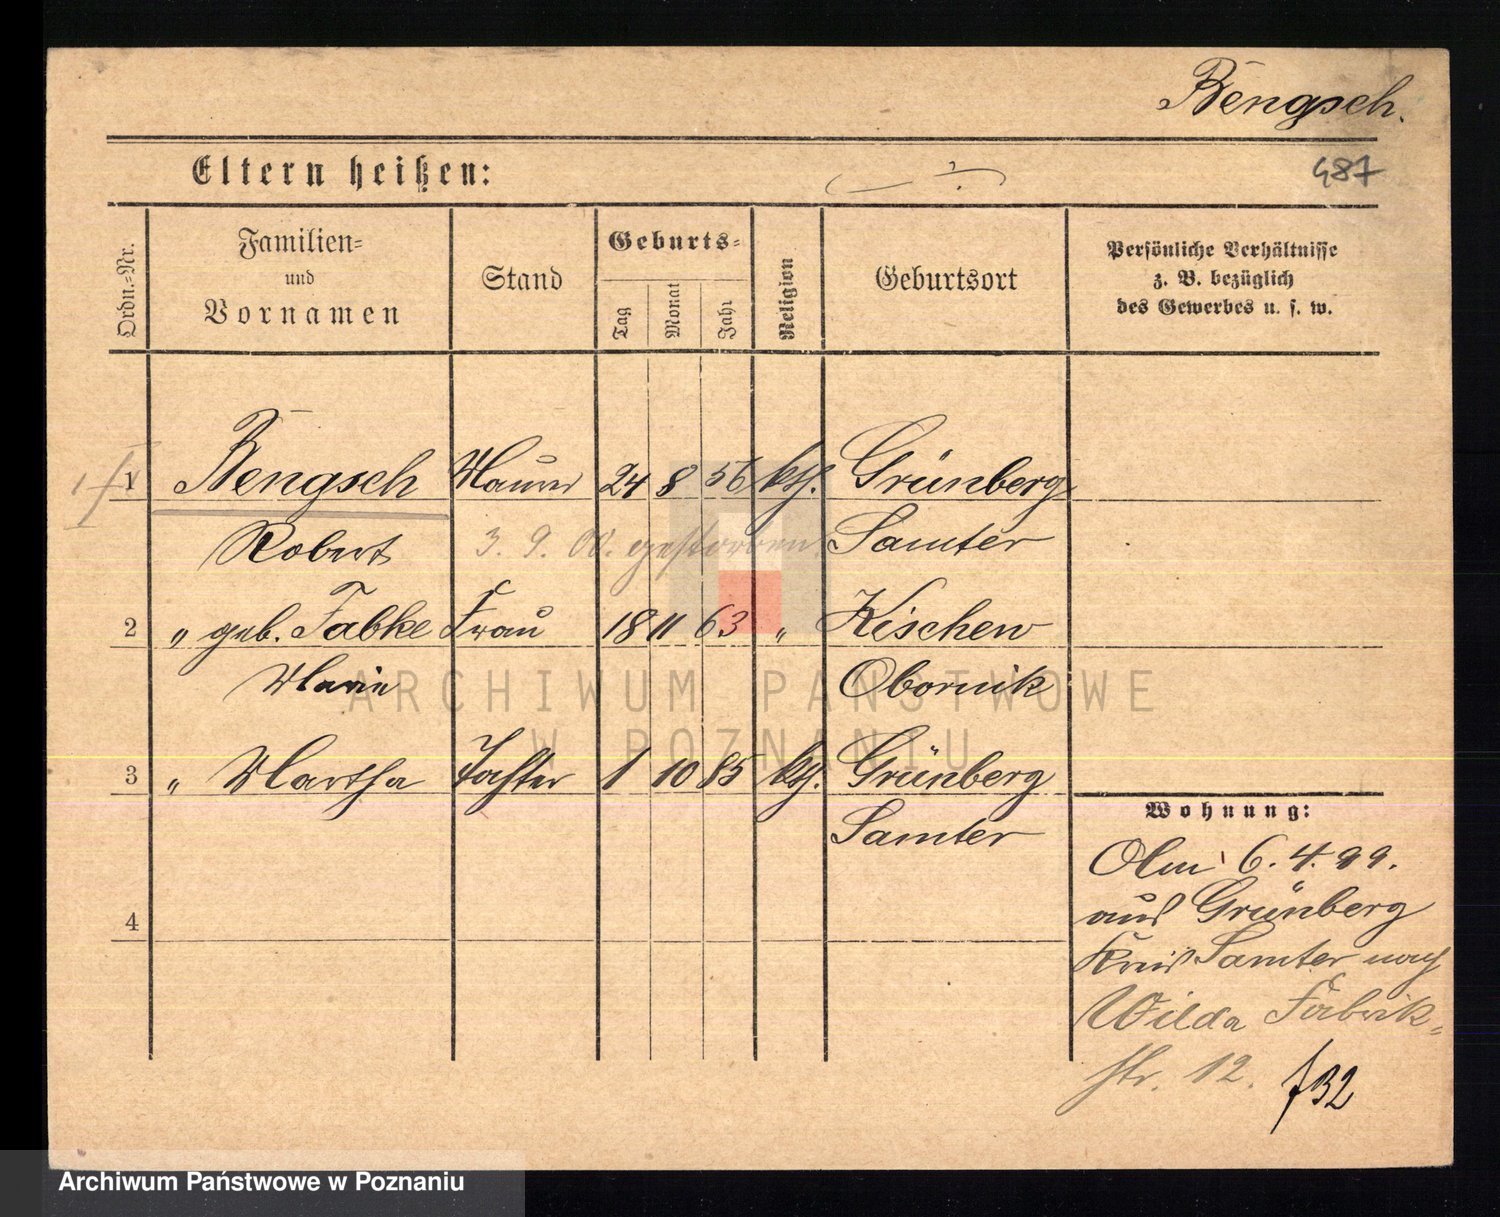 Bengsch.
Eltern heißen:
487
Ordn.-Nr.
Familien-
und
Vornamen
Stand
Geburts-
Tag
Monat
Jahr
Religion
Geburtsort
Persönliche Verhältnisse
z. B. bezüglich
des Gewerbes u. s. w.
1 Bengsch Maurer 24 8 56 kth. Grünberg
Robert 3. 9. 00. gestorben Samter
2 " geb. Fabke Frau 18 11 63 " Kischewo
Marie Obornik
3 " Martha Tochter 1 10 85 kth. Grünberg
Samter
4
Wohnung:
Am 6. 4. 99.
aus Grünberg
Kreis Samter nach
Wilda Fabrik-
str. 12.
f32
ARCHIWUM PAŃSTWOWE
W POZNANIU
Archiwum Państwowe w Poznaniu